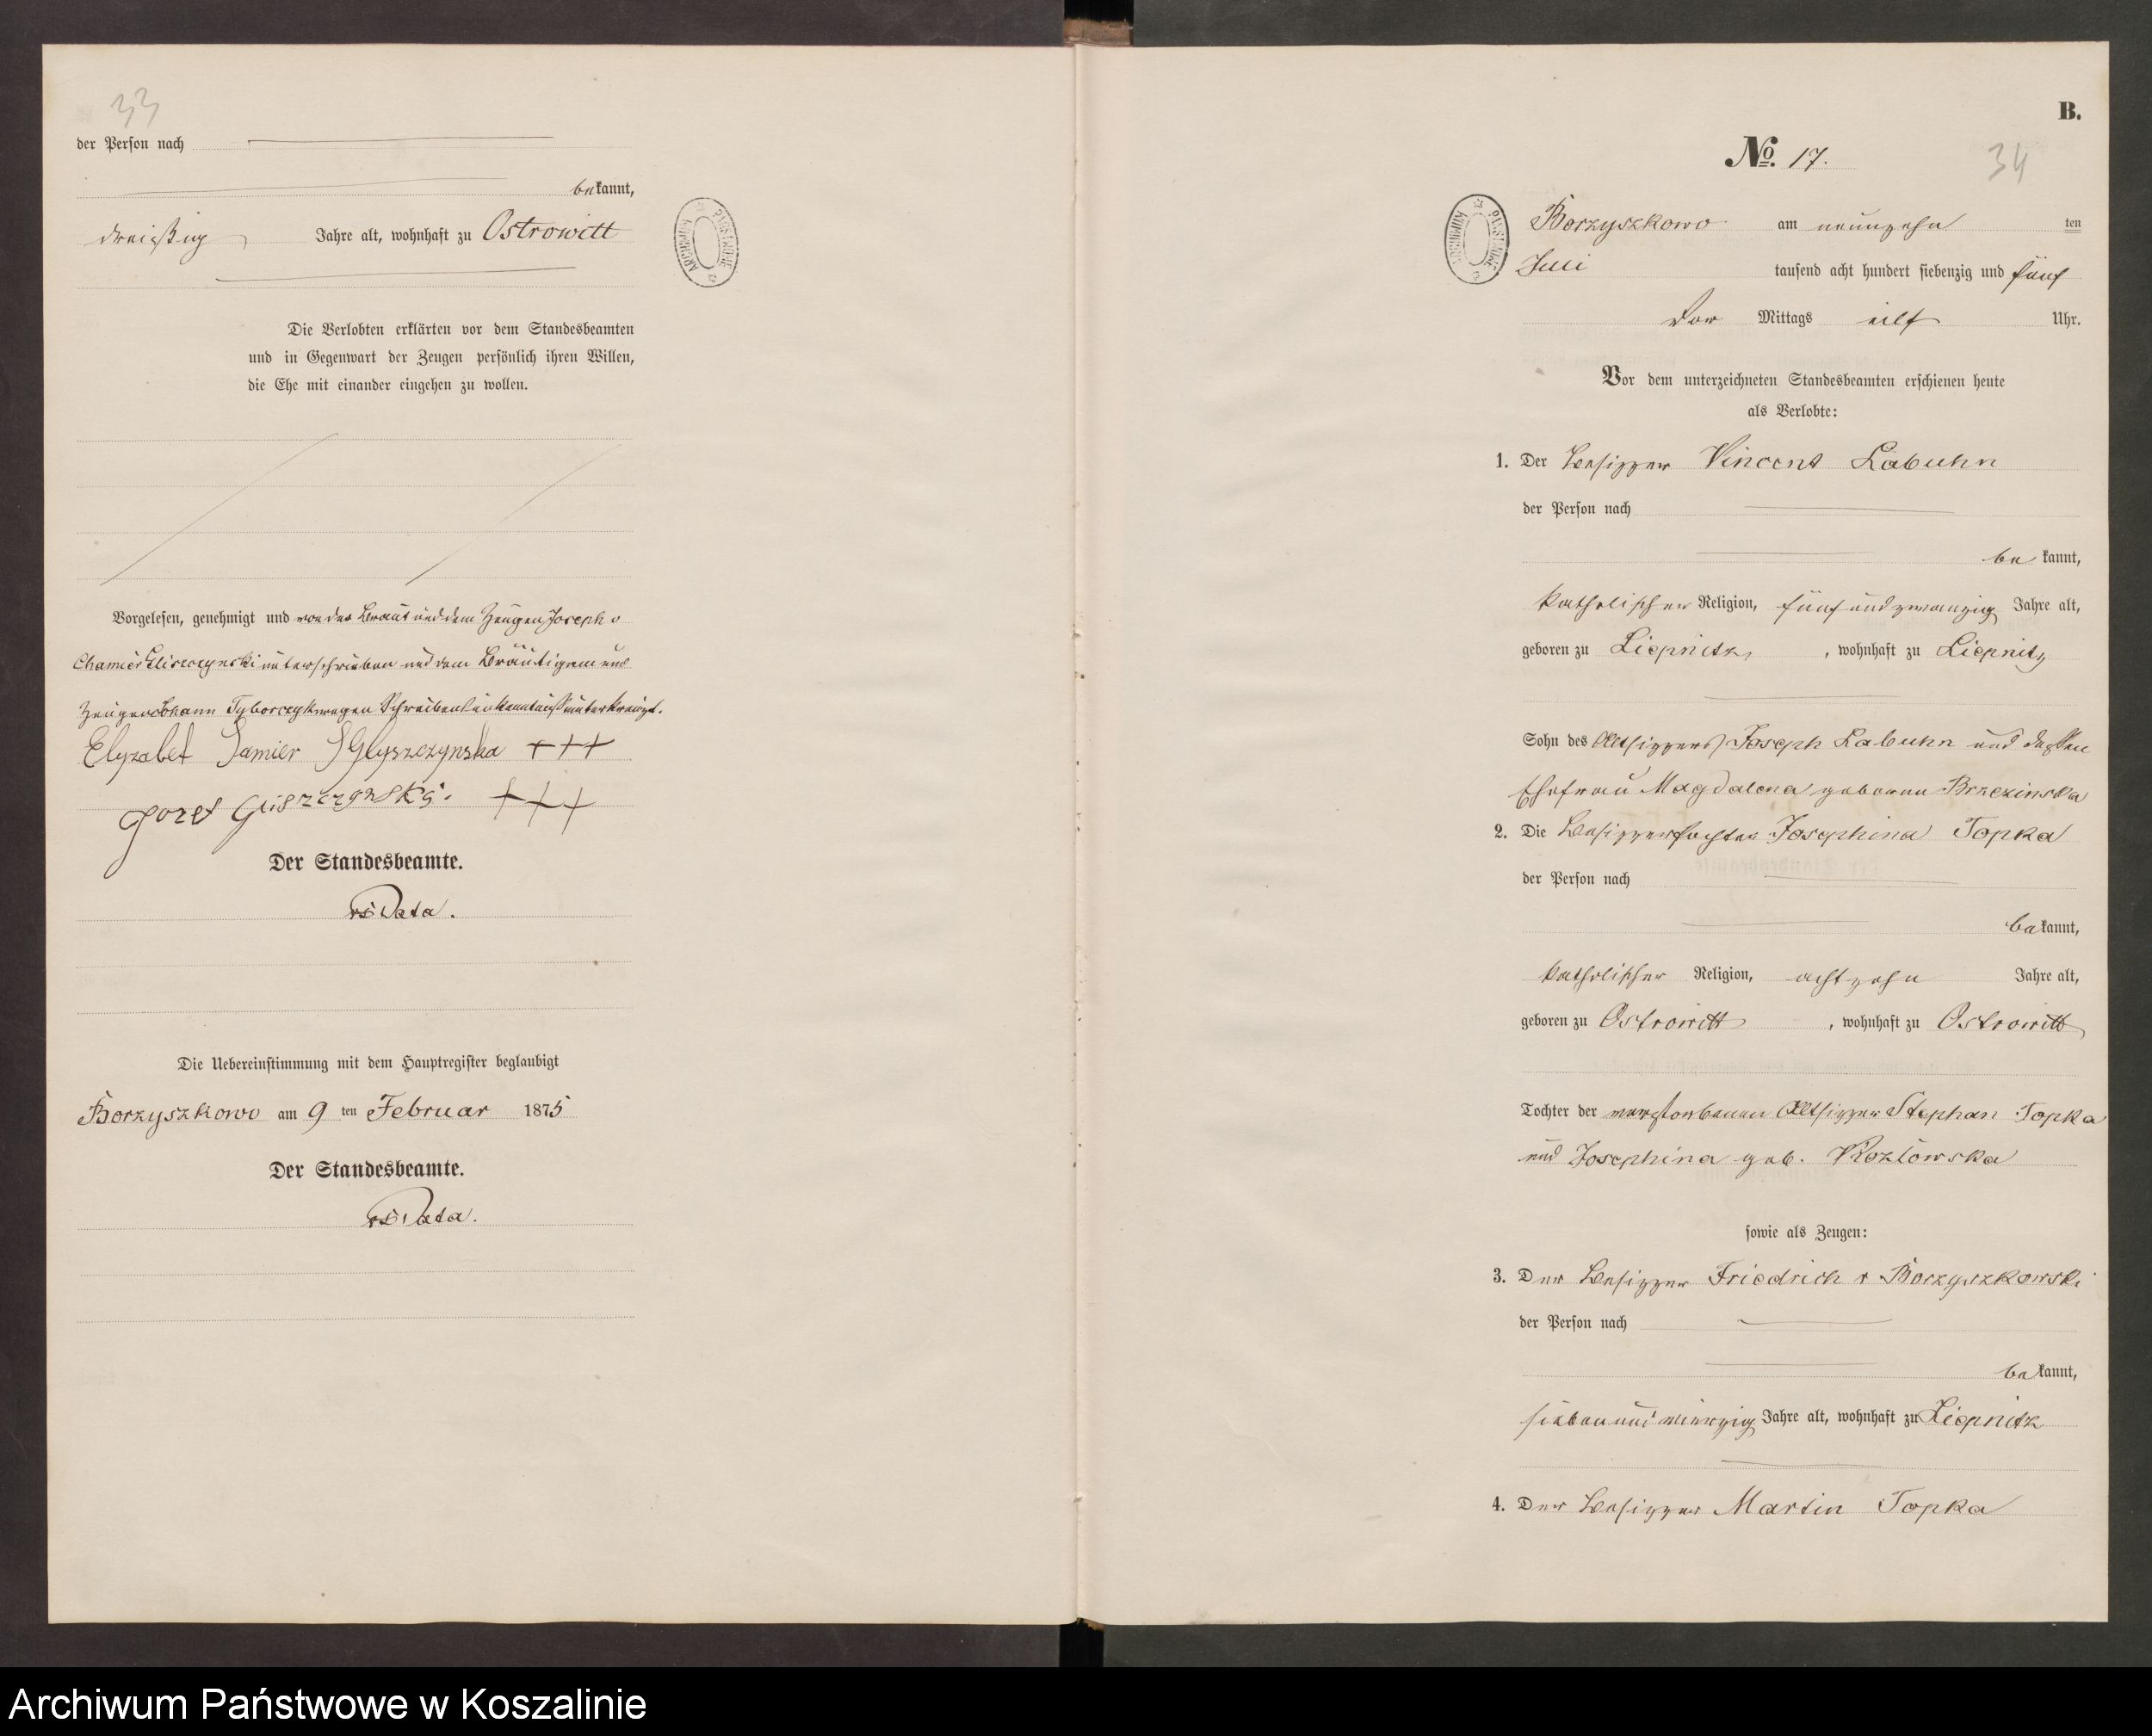 33
der Person nach
bekannt,
dreißig Jahre alt, wohnhaft zu Ostrowitt
Die Verlobten erklärten vor dem Standesbeamten
und in Gegenwart der Zeugen persönlich ihren Willen,
die Ehe mit einander eingehen zu wollen.
Vorgelesen, genehmigt und von der Braut und dem Zeugen Joseph v
Chamier Gliszczynski unterschrieben und dem Bräutigam und
Zeugen Johann Tyborczyk wegen Schreibens unkenntniß unterkreuzt.
Elyzabet Glyszczynska +++
Jozef Gliszczynski. +++
Der Standesbeamte.
Data.
Die Uebereinstimmung mit dem Hauptregister beglaubigt
Borzyszkowo am 9 ten Februar 1875
Der Standesbeamte.
Data.
B.
No. 17.
34
ARCHIWUM PAŃSTWOWE
ARCHIWUM PAŃSTWOWE
Borzyszkowo am neunzehn ten
Juli tausend acht hundert siebenzig und fünf
Vor Mittags eilf Uhr.
Vor dem unterzeichneten Standesbeamten erschienen heute
als Verlobte:
1. Der Besitzer Vincent Labuhn
der Person nach
bekannt,
katholischer Religion, fünf und zwanzig Jahre alt,
geboren zu Liepnitz, wohnhaft zu Liepnitz
Sohn des Altsitzers Joseph Labuhn und dessen
Ehefrau Magdalena geborne Brzezinska
2. Die Besitzertochter Josephina Topka
der Person nach
bekannt,
katholischer Religion, achtzehn Jahre alt,
geboren zu Ostrowitt, wohnhaft zu Ostrowitt
Tochter der verstorbenen Altsitzer Stephan Topka
und Josephina geb. Kozlowska
sowie als Zeugen:
3. Der Besitzer Friedrich v Borzyszkowski
der Person nach
bekannt,
sieben und vierzig Jahre alt, wohnhaft zu Liepnitz
4. Der Besitzer Martin Topka
Archiwum Państwowe w Koszalinie